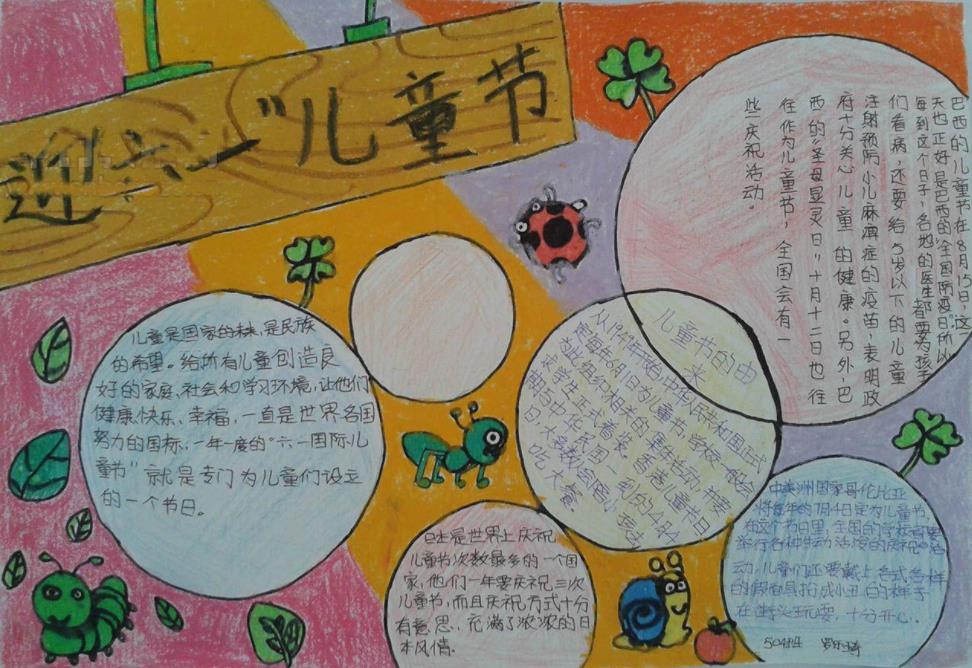 迎六一"儿童节
巴西的儿童节在8月15日,这
天也正好是巴西的"全国防疫日"所以
每到这个日子,各地的医生都要为孩子
们看病,还要给5岁以下的儿童
注射预防小儿麻痹症的疫苗,表明政
府十分关心儿童的健康。另外,巴
西的"圣母显灵日"十月十二日也往
往作为儿童节,全国会有一
些庆祝活动。
儿童是国家的未来,是民族
的希望。给所有儿童创造良
好的家庭、社会和学习环境,让他们
健康、快乐、幸福,一直是世界各国
努力的国标,一年一度的"六一国际儿
童节"就是专门为儿童们设立
的一个节日。
儿童节的由
来
从1949年开始中华人民共和国正式
定每年6月1日为儿童节,学校一般会
为此组织相关的集体活动,并要
求学生正式着装。香港儿童节日
期与中华民国一致的4月4
日,大多数会唱
吃大餐
日本是世界上庆祝
儿童节次数最多的一个国
家,他们一年要庆祝三次
儿童节,而且庆祝方式十分
有意思,充满了浓浓的日
本风情.
中美洲国家哥伦比亚
将每年的7月4日定为儿童节,
在这个节日里,全国的学校都要
举行各种生动活泼的庆祝活
动,儿童们还要戴上各式各样
的假面具扮成小丑的样子
在街头玩耍,十分开心..